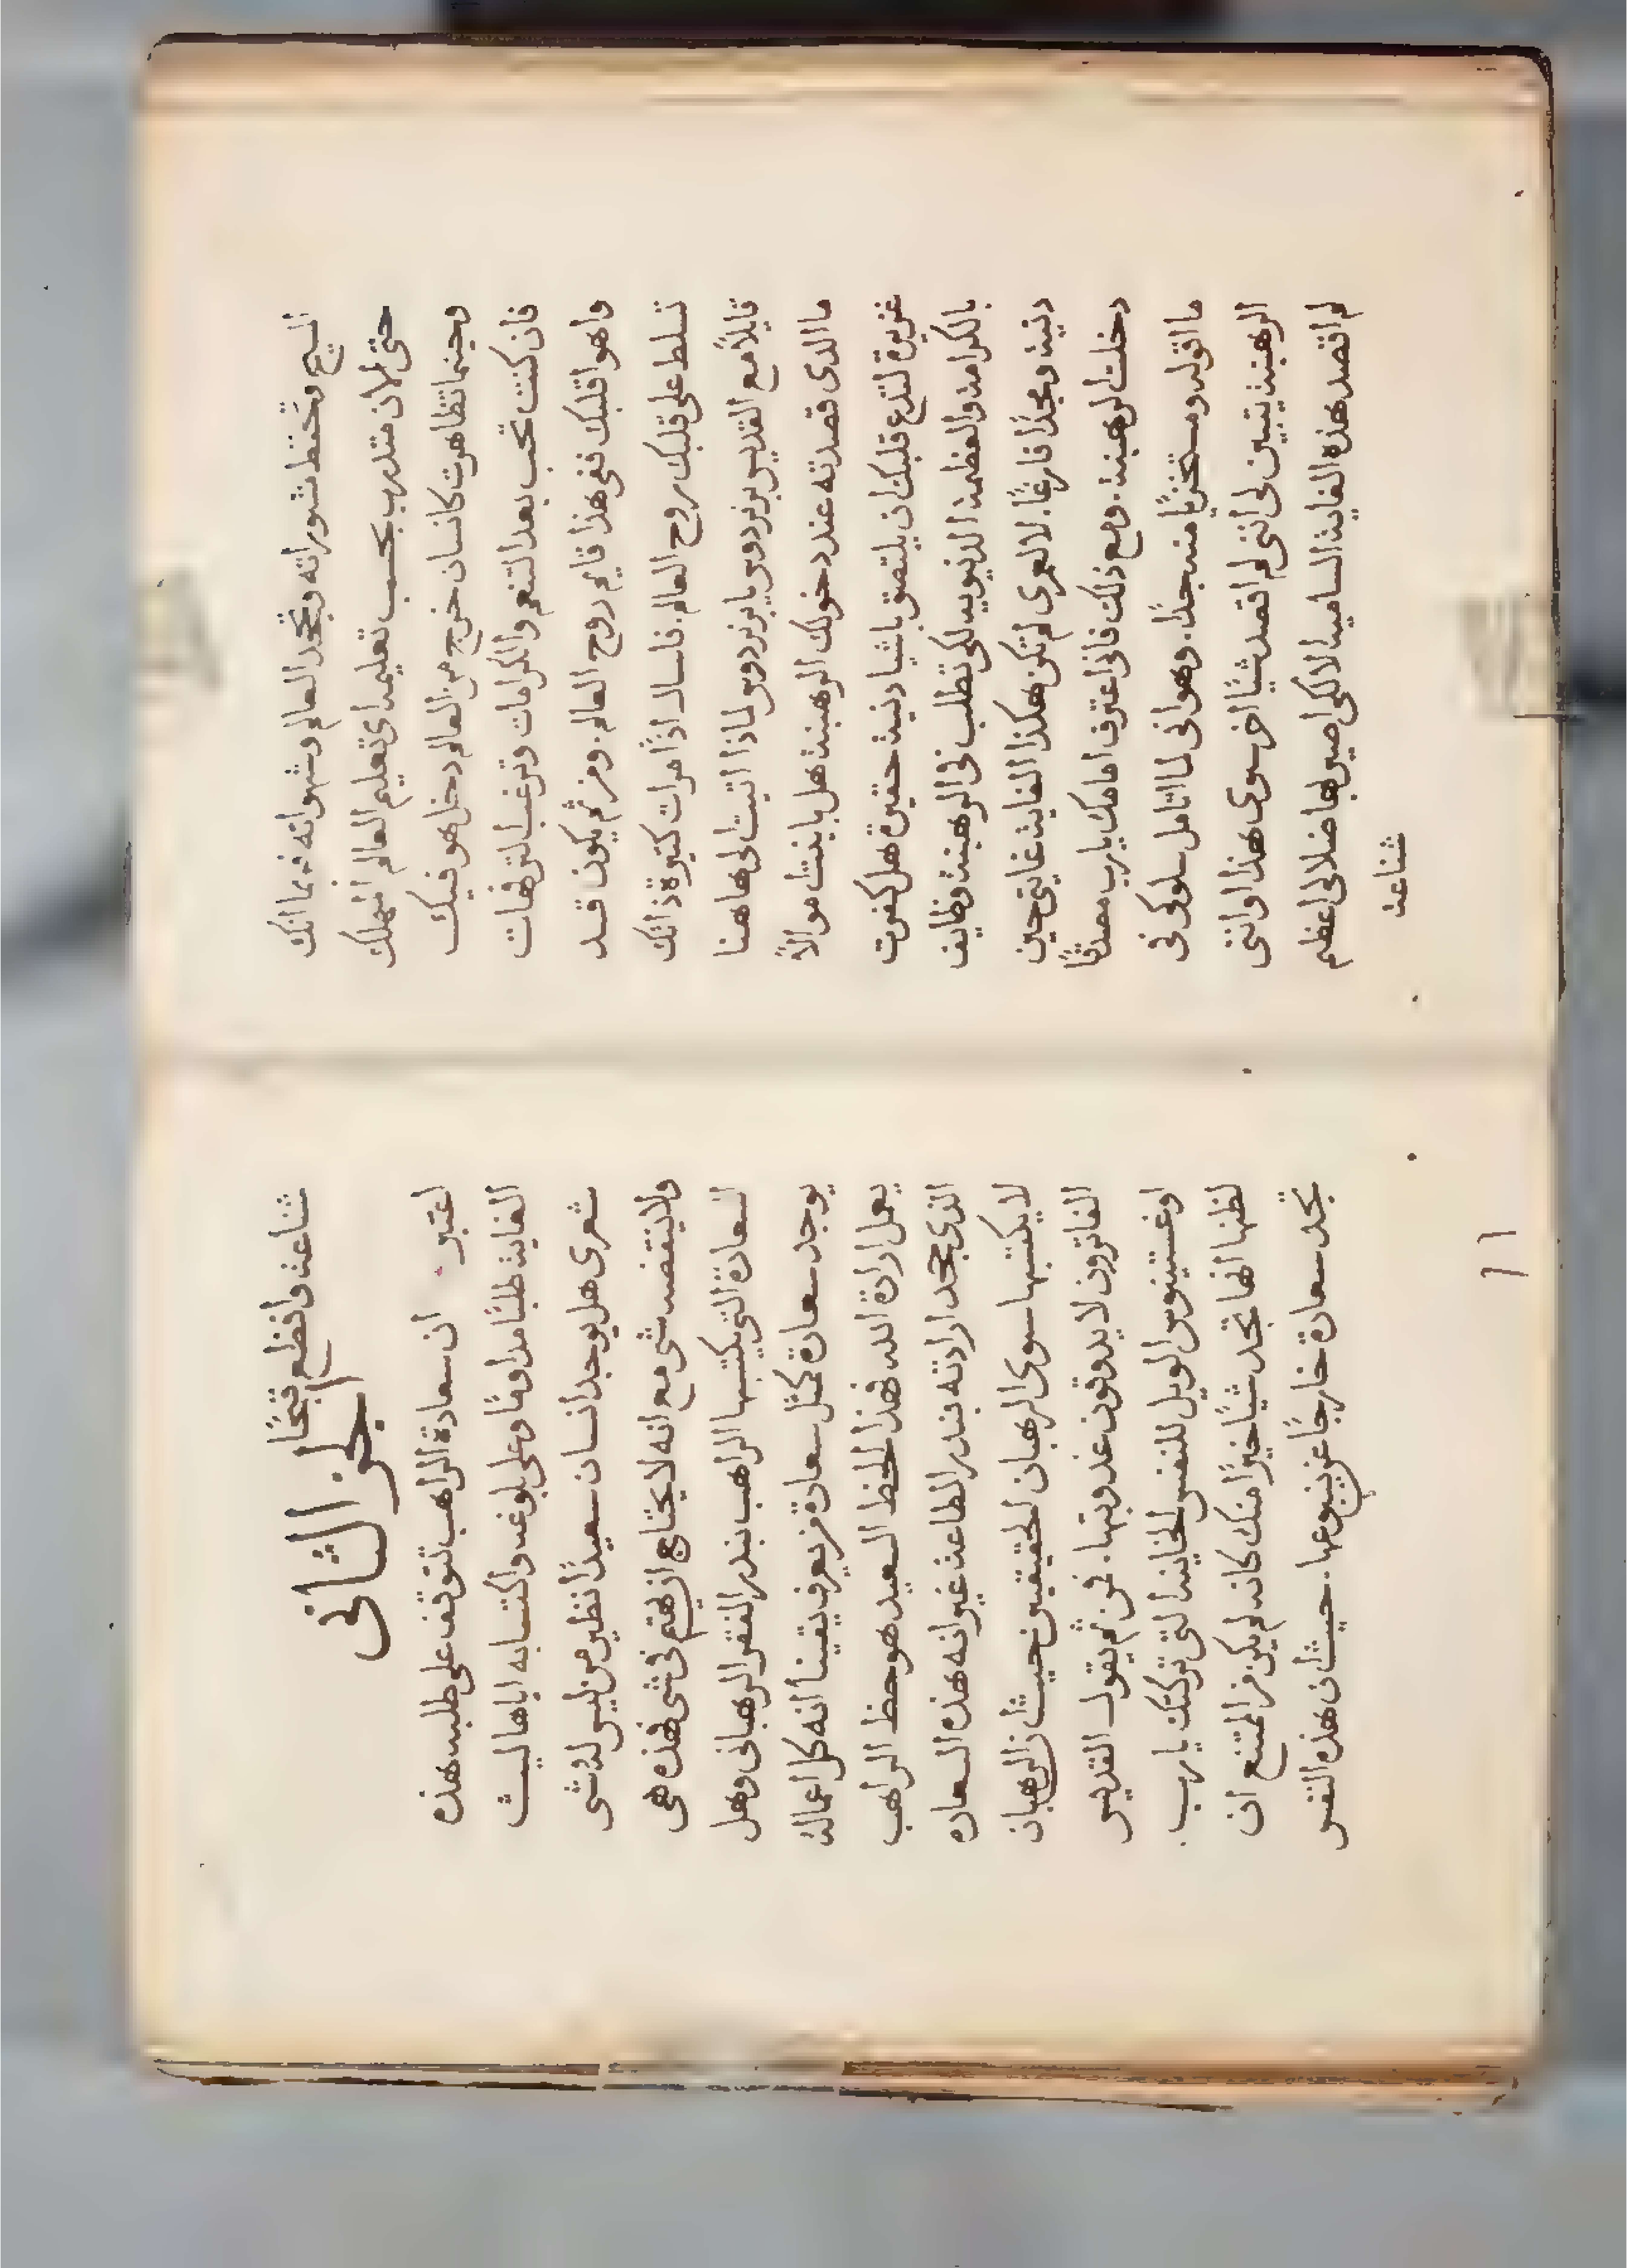 المسيح وتحتفظ مشوراته وتجحد العالم وشهواته فربما انك
حتى الان متدرب بحسب تعليمه اي تعليم العالم المهلك
وحينما تظاهرت كانسان خرج من العالم دخل هو فيك
فان كنت تحب بعد التنعم والكرامات وترغب الترفهات
واهوا قلبك ففي هذا قايم روح العالم. ومن ثم يكون قد
تسلط على قلبك روح العالم. فاسال اذًا مرات كثيرة ذاتك
قايلًا مع القديس برنردوس يا برنردوس لماذا اتيت الى هاهنا
ما الذي قصدته عند دخولك الرهبنة هل يا بنت اموالًا
غزيرة لتدع قلبك ان يلتصق باشيا دنية حقيرة هل كفرت
بالكرامة والعظمة الدنيويه لكي تطلب في الرهبنة وظايف
دنية ومجدًا فارغًا. لا لعمري لم تكن هكذا الغاية غايتي حين
دخلت الرهبنة. ومع ذلك فاني اعترف امامك يا رب مصدقًا
ما اقوله ومستخزيًا منه جدًا. وهو اني لما اتامل سلوكي في
الرهبنة يتبين لي انني لم اقصد شيئًا اخر سوى هذا او انني
لم اقصد هذه الغاية الساميه الا لكي اصير بها ضلالي اعظم
شناعة
شناعة وافظع قبحًا
الجز الثاني
اعتبر ان سعادة الراهب تتوقف على طلبه هذه
الغاية طلبًا مداومًا وعلى بلوغه واكتسابه اياها ليت
شعري هل يوجد انسان سعيدًا نظير من ليس له شي
ولا ينقصه شي مع انه لا يحتاج ان يهتم في شي فهذه هي
السعادة التي يكتسبها الراهب بنذر الفقر الرهباني وهل
يوجد سعادة كمثل سعادة من يعرف يقينًا انه كل اعماله
يعمل ارادة الله فهذا الحظ السعيد هو حظ الراهب
الذي جحد ارادته بنذر الطاعة غير انه هذه السعاده
لا يكتسبها سوى الرهبان الحقيقيين حيث ان الرهبان
الفاترون لا يدوقون عذوبتها. فمن ثم يقول القديس
اوغستينوس الويل للنفس الخاينه التي تركتك يا رب.
لظنها انها تجد شيئًا خيرًا منك كانه لم يكن من الممتنع ان
تجد سعادة خارجًا عن ينبوعها. حيث ان هذه النفس
١١